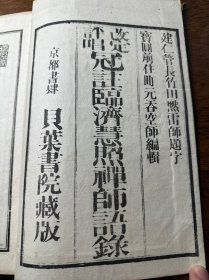 建仁管長竹田黙雷師題字
寶圓前住助元呑空師編輯
改定
冠註臨濟慧照禪師語錄
京都書肆
貝葉書院藏版